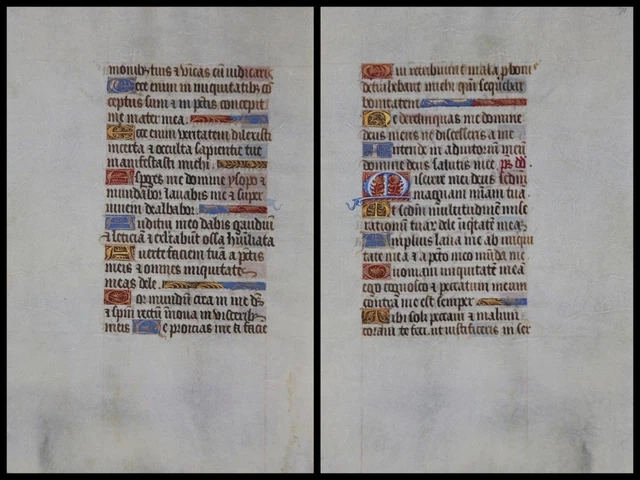 monibus tuis et vincas cum iudicaris
Ecce enim in iniquitatibus con
ceptus sum et in peccatis concepit
me mater mea.
Ecce enim veritatem dilexisti
incerta et occulta sapientie tue
manifestasti michi.
Asperges me domine ysopo et
mundabor lavabis me et super
nivem dealbabor.
Auditui meo dabis gaudium
et leticiam et exultabunt ossa humiliata
Averte faciem tuam a peccatis
meis et omnes iniquitates
meas dele.
Cor mundum crea in me deus
et spiritum rectum innova in visceribus
meis Ne proicias me a facie
Qui retribuunt mala pro bonis
detrahebant michi quoniam sequebar
bonitatem
Ne derelinquas me domine
deus meus ne discesseris a me
Intende in adiutorium meum
domine deus salutis mee. ps dd.
Miserere mei deus secundum
magnam misericordiam tuam.
Et secundum multitudinem mise
rationum tuarum dele iniquitatem meam
Amplius lava me ab iniqui
tate mea et a peccato meo munda me
Quoniam iniquitatem meam
ego cognosco et peccatum meum
contra me est semper
Tibi soli peccavi et malum
coram te feci. ut iustificeris in ser